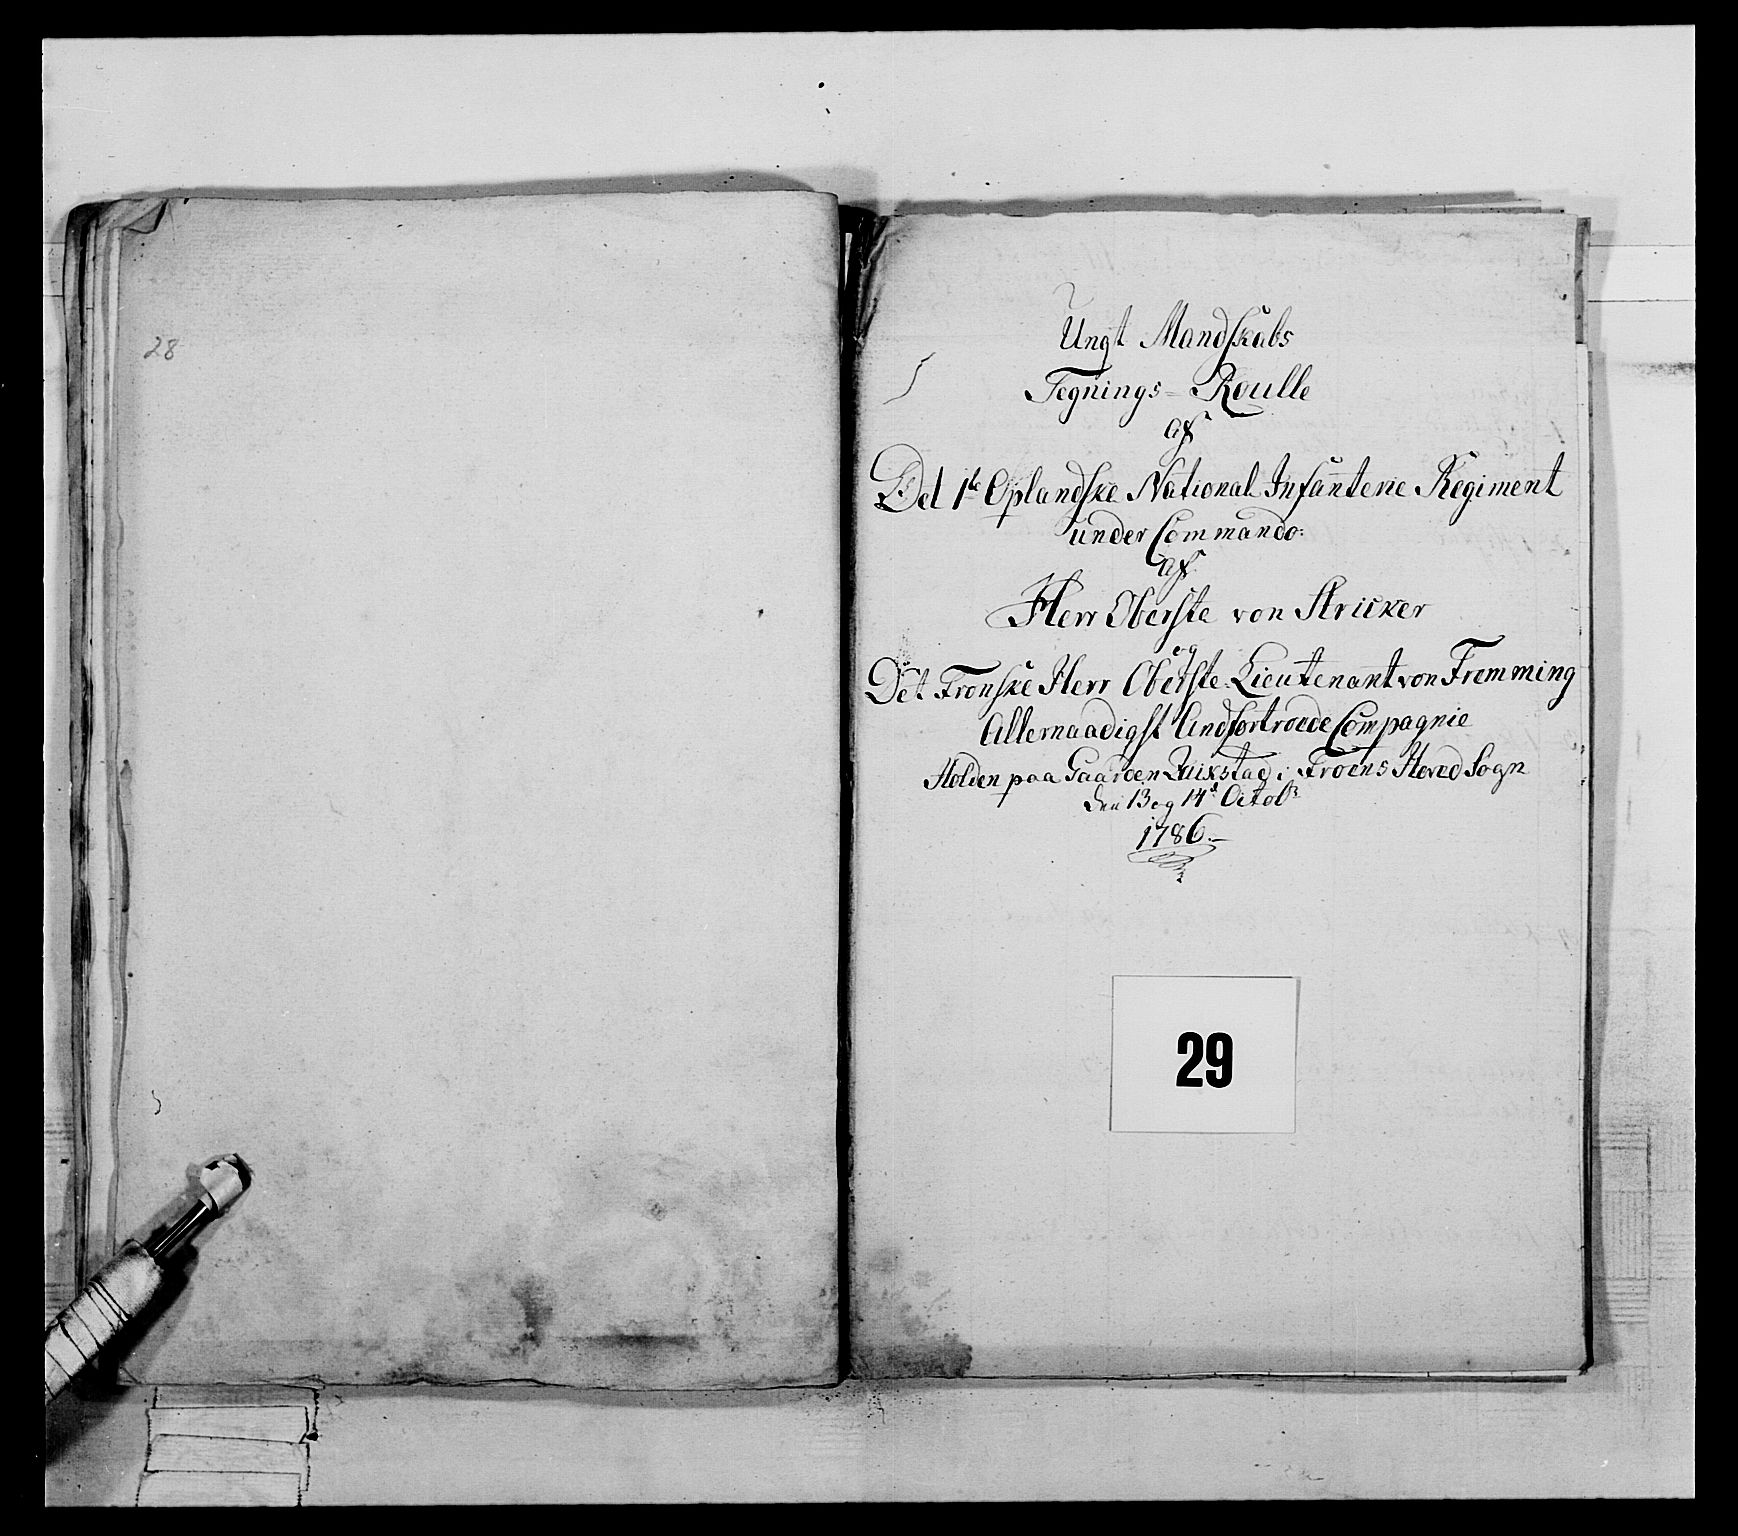 28
Ungt Mandskabs
Tegnings=Roulle
af
Det 1te Oplandske National Infanterie Regiment
under Commando:
af
Herr Oberste von Stricker
og
Det Fronske Herr Oberste-Lieutenant von Fremming
Allernaadigst Andfortroede Compagnie
Holden paa Gaarden i Froens Hoved Sogn
den 13 og 14d Octobr
1786.
29